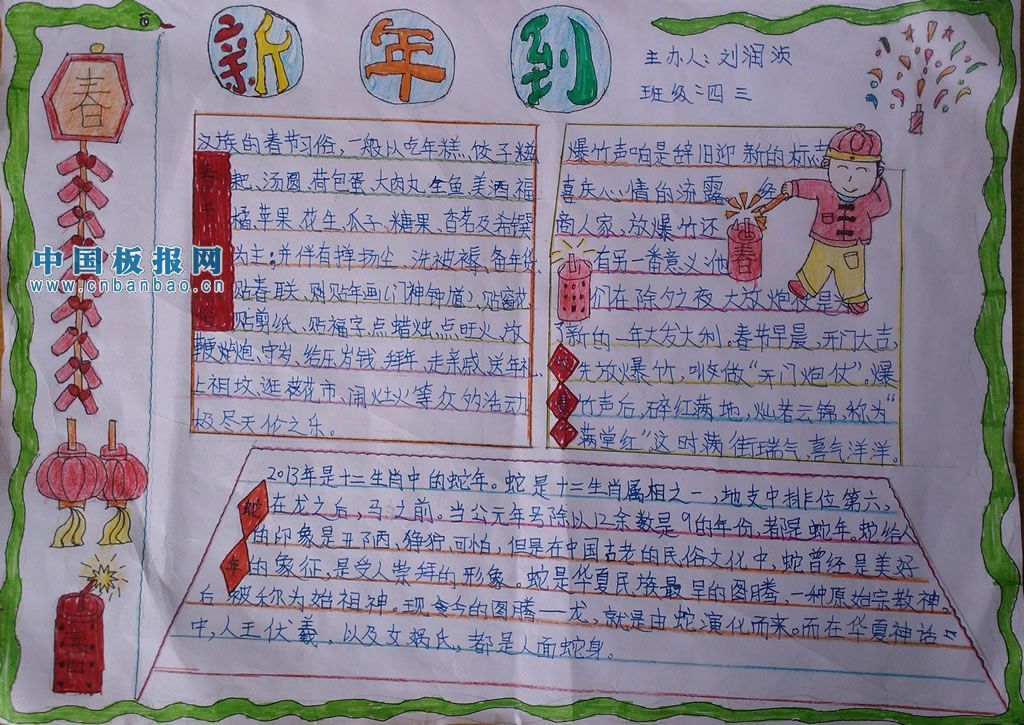 新年到
主办人:刘润浈
班级:四三
春
汉族的春节习俗,一般以吃年糕、饺子、糍
粑、汤圆、荷包蛋、大肉丸、全鱼、美酒、福
橘、苹果、花生、瓜子、糖果、香茗及
为主;并伴有掸扬尘、洗被褥、备年货、
贴春联、贴年画、贴窗花
贴剪纸、贴福字、点蜡烛、点旺火、放
鞭炮、守岁、给压岁钱、拜年、走亲戚、送年礼、
上祖坟、逛花市、闹社火等众的活动
极尽天伦之乐。
爆竹声响是辞旧迎新的标志
喜庆心情的流露 经
商人家,放爆竹还
有另一番意义:他
们在除夕之夜大放炮仗是
新的一年大发大利。春节早晨,开门大吉,
先放爆竹,叫做“开门炮仗”。爆
竹声后,碎红满地,灿若云锦,称为“
满堂红”这时满街瑞气,喜气洋洋。
春
中国板报网
www.cnbanbao.cn
2013年是十二生肖中的蛇年。蛇是十二生肖属相之一,地支中排位第六,
在龙之后,马之前。当公元年号除以12余数是9的年份,都是蛇年。蛇给人
的印象是丑陋、狰狞、可怕,但是在中国古老的民俗文化中,蛇曾经是美好
的象征,是受人崇拜的形象。蛇是华夏民族最早的图腾,一种原始宗教神,
后被称为始祖神。现今的图腾——龙,就是由蛇演化而来。而在华夏神话
中,人王伏羲,以及女娲氏,都是人面蛇身。
蛇
年
春